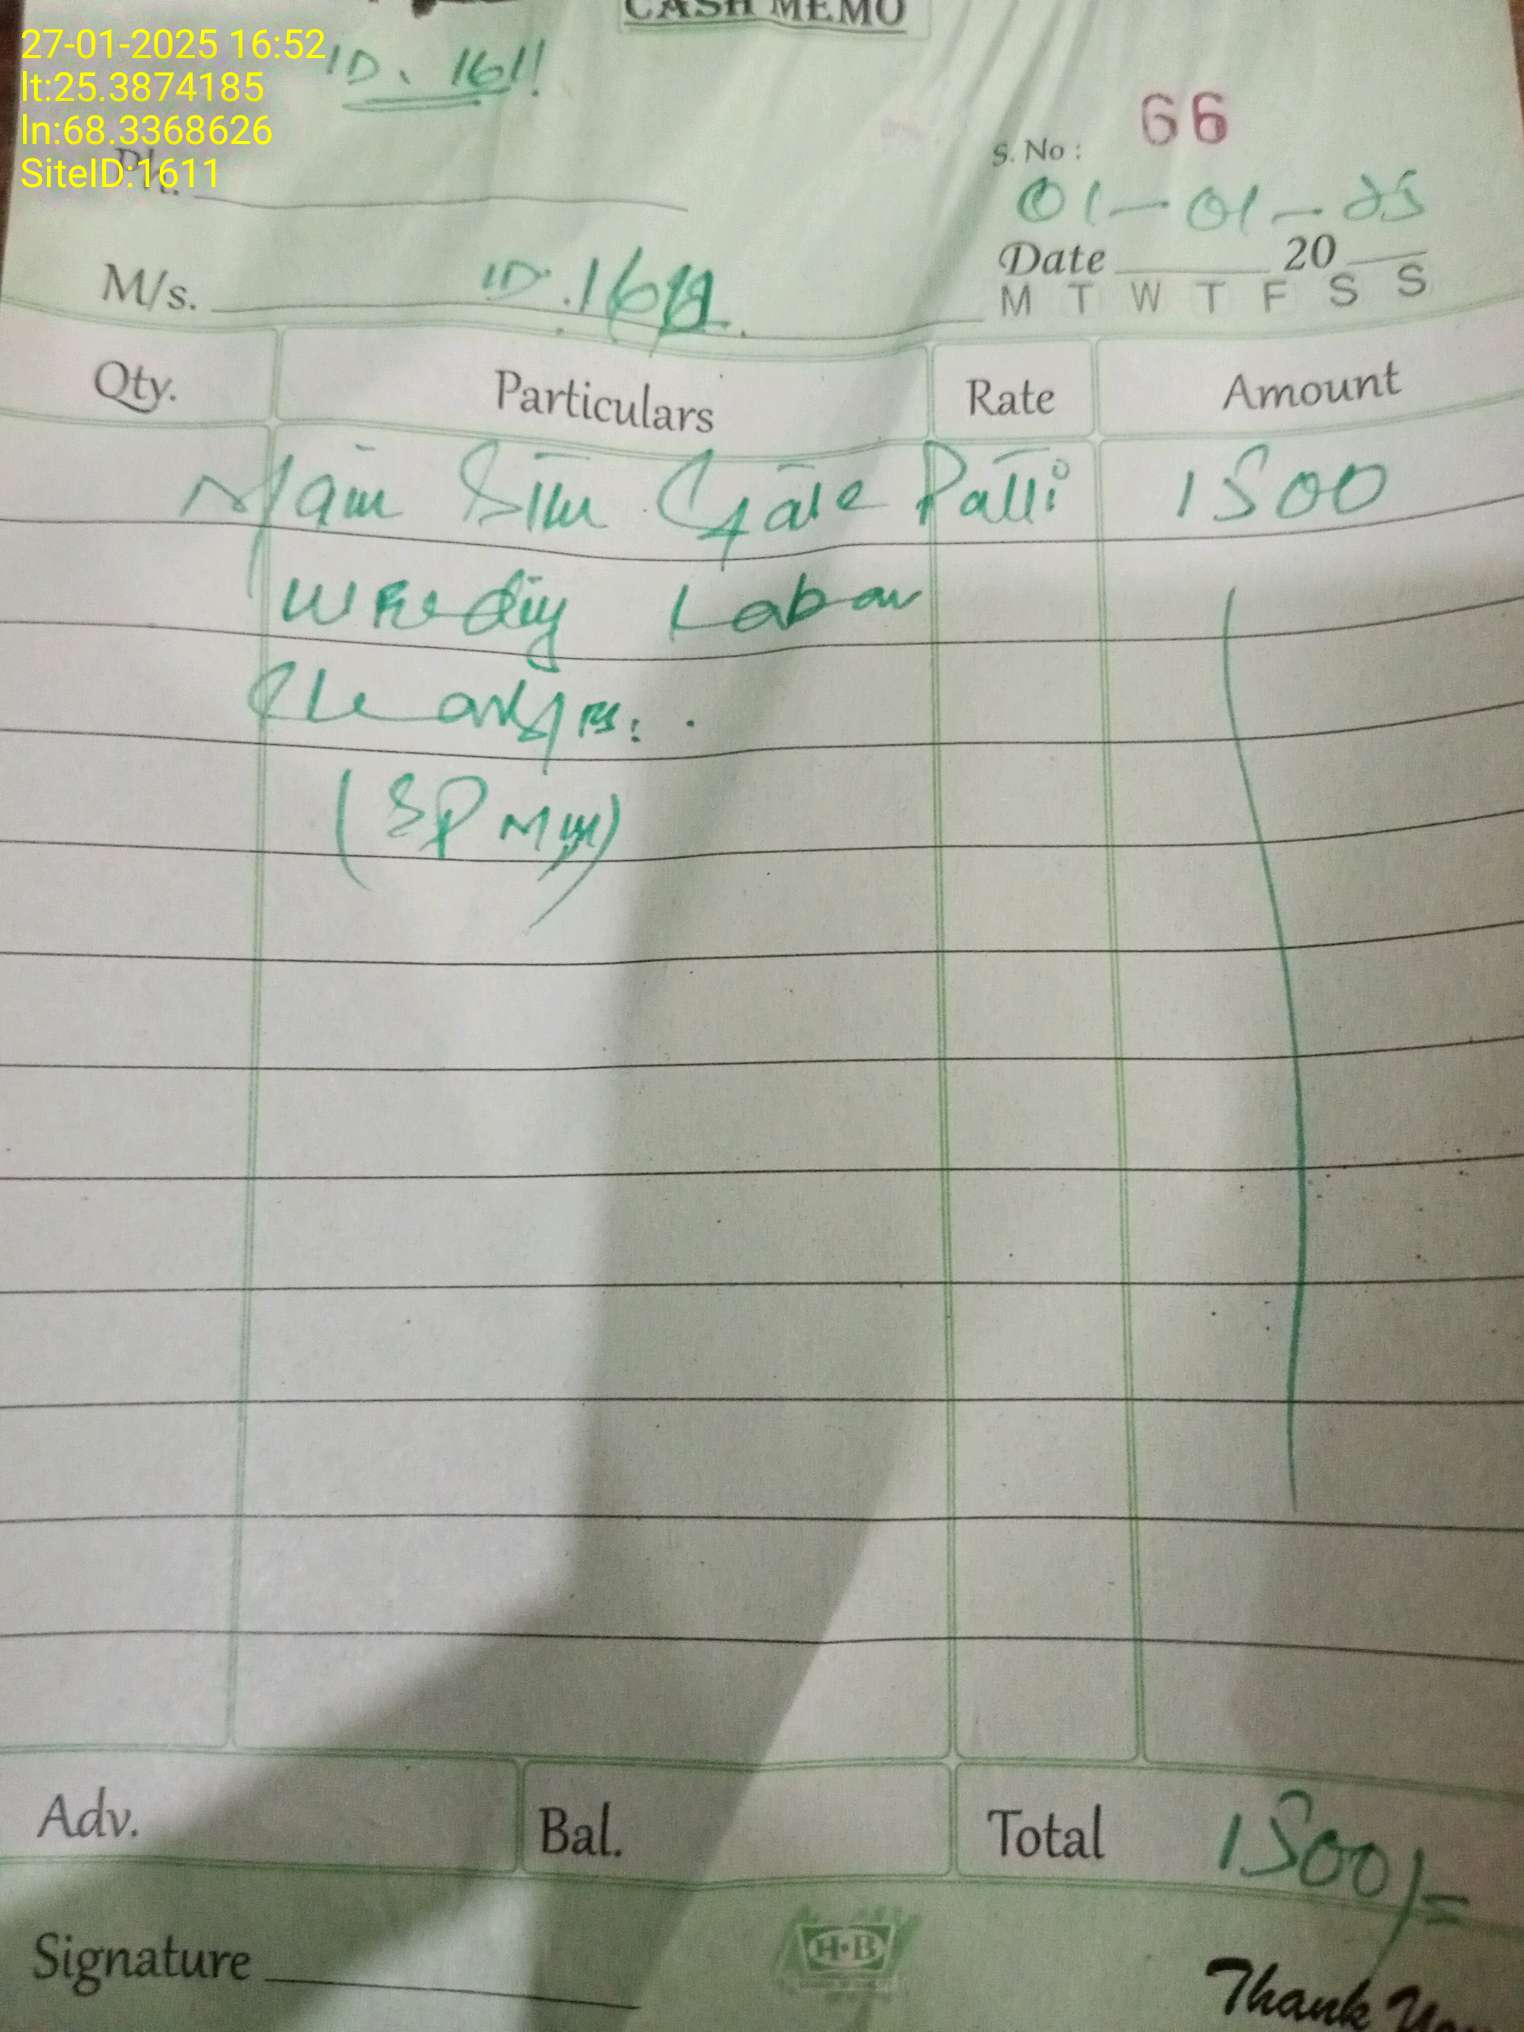 CASH MEMO
27-01-2025 16:52
lt:25.3874185
ln:68.3368626
SiteID:1611
ID. 1611
Ph.
S. No : 66
01-01-25
Date 20
M T W T F S S
M/s. ID. 1611
Qty. Particulars Rate Amount
Main Gate Patti 1500
Labour
(SP
Adv. Bal. Total 1500/=
Signature
H·B
Thank You